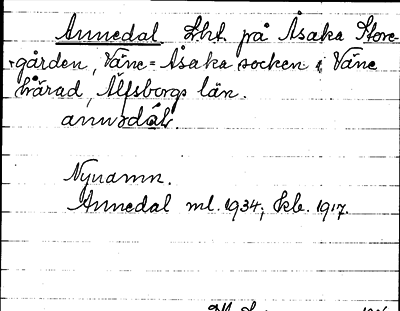 Annedal Lht på Åsaka Store-
gården, Väne-Åsaka socken i Väne
härad, Älfsborgs län.
Nynamn.
Annedal ml. 1934; kb. 1917.